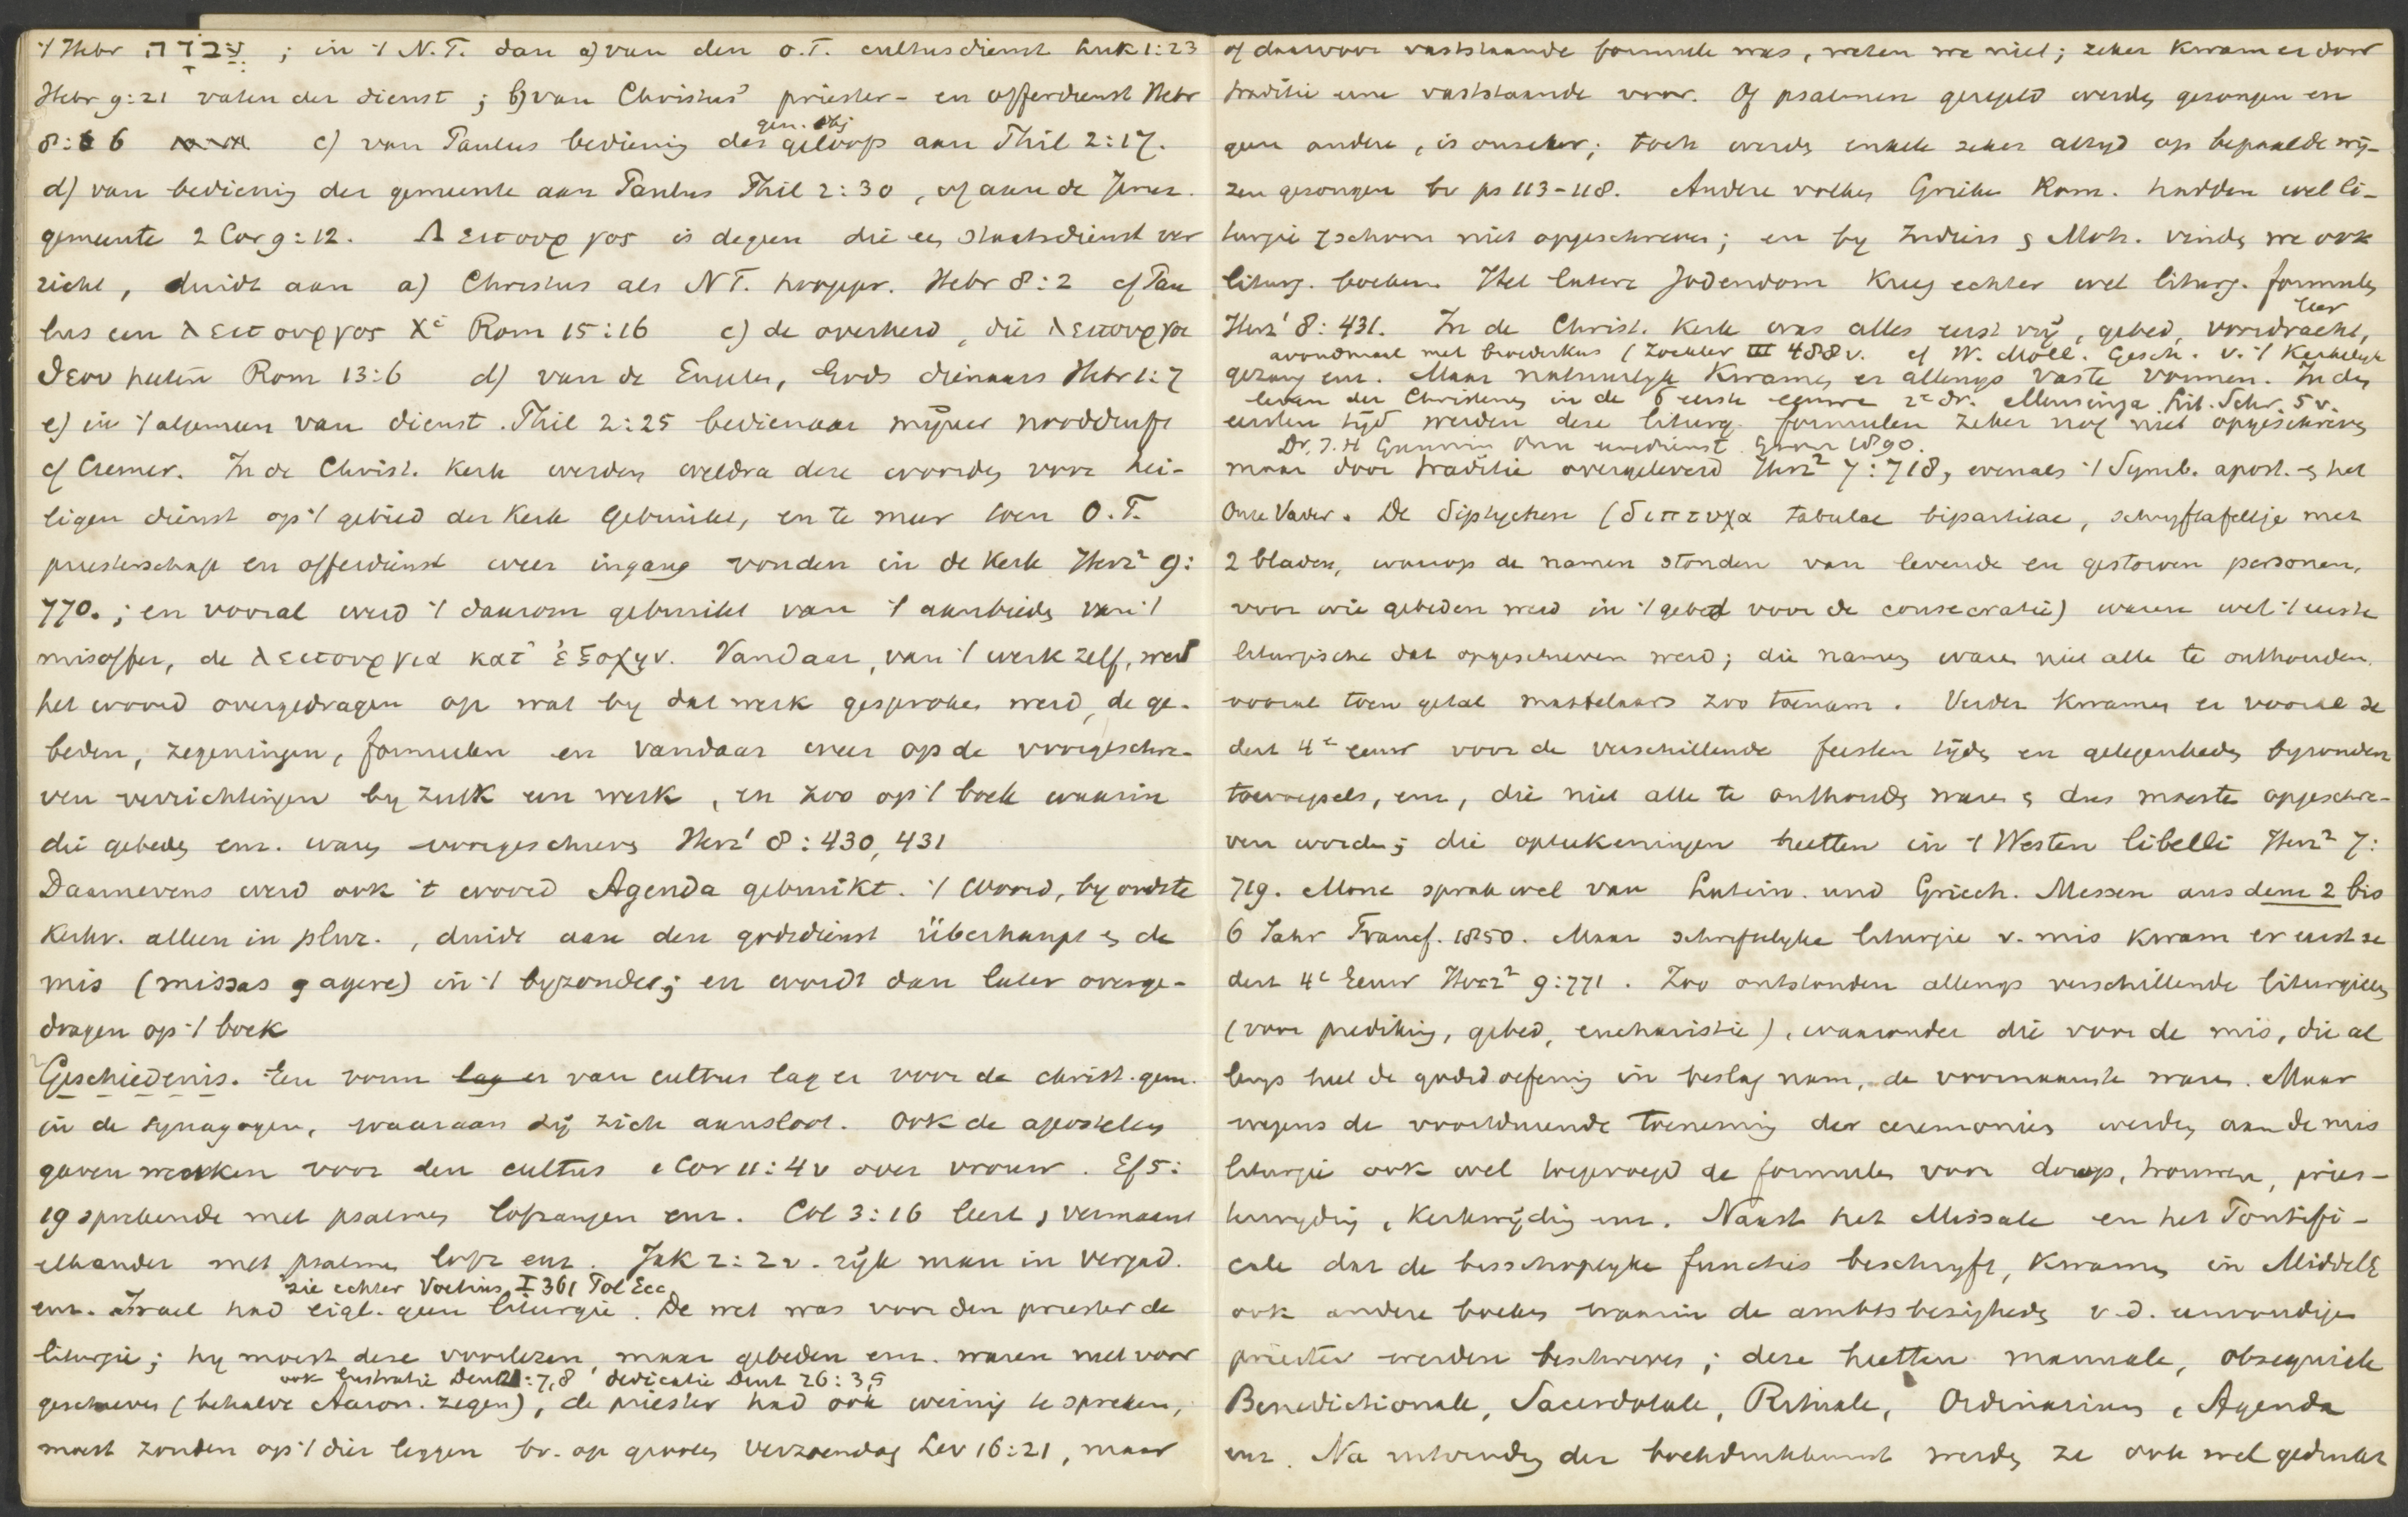 't Hebr עֲבֹדָה ; in 't N.T. dan a) van den O.T. cultusdienst Luk 1:23
Hebr 9:21 vaten der dienst ; b) van Christus' priester- en offerdienst Hebr
8:6 c) van Paulus bediening des geloofs aan Phil 2:17.
gen. obj
d) van bediening der gemeente aan Paulus Phil 2:30, of aan de Jeruz.
gemeente 2 Cor 9:12. Λειτουργος is degeen die een staatsdienst ver
richt, duidt aan a) Christus als NT. hoogepr. Hebr 8:2 cf Pau
lus een λειτουργος Χι Rom 15:16 c) de overheid, die λειτουργοι
θεου heeten Rom 13:6 d) van de Engelen, Gods dienaars Hebr 1:7
e) in 't algemeen van dienst. Phil 2:25 bedienaar mijner nooddruft
cf Cremer. In de Christ. Kerk werden weldra deze woorden voor hei-
ligen dienst op 't gebied der Kerk gebruikt, en te meer toen O.T.
priesterschap en offerdienst weer ingang vonden in de Kerk Herz² 9:
770. ; en vooral werd 't daarom gebruikt van 't aanbieden van 't
misoffer, de λειτουργια κατ' ἐξοχην. Vandaar, van 't werk zelf, werd
het woord overgedragen op wat by dat werk gesproken werd, de ge-
beden, zegeningen, formulen en vandaar weer op de voorgeschre-
ven verrichtingen by zulk een werk, en zoo op 't boek waarin
die gebeden enz. waren voorgeschreven Herz¹ 8:430, 431
Daarnevens werd ook 't woord Agenda gebruikt. 't Woord, by oudste
Kerkv. alleen in plur., duidt aan den godsdienst überhaupt en de
mis (missas agere) in 't byzonder; en wordt dan later overge-
dragen op 't boek
Geschiedenis. Een vorm lag er van cultus lag er voor de christ. gem.
in de synagogen, waaraan zij zich aansloot. Ook de apostelen
gaven wenken voor den cultus 1 Cor 11:4v over vrouw. Ef 5:
19 sprekende met psalmen lofzangen enz. Col 3:16 leert, vermaant
elkander met psalmen lofz enz. Jak 2:2v. rijk man in vergad.
zie echter Voetius I 361 Pol Ecc
enz. Israel had eigl. geen liturgie. De wet was voor den priester de
liturgie; hy moest deze voorlezen, maar gebeden enz. waren niet voor
ook lustratie Deut 21:7,8 dedicatie Deut 26:3,5
geschreven (behalve Aaron. zegen), de priester had ook weinig te spreken,
moest zonden op 't dier leggen bv. op grooten Verzoendag Lev 16:21, maar
of daarvoor vaststaande formule was, weten we niet; zeker kwam er door
traditie eene vaststaande voor. Of psalmen geregeld werden gezongen en
geen andere, is onzeker; toch werden enkele zeker altyd op bepaalde wij-
zen gezongen bv ps 113-118. Andere volken Grieken Rom. hadden wel li-
turgie schoon niet opgeschreven; en by Indiers & Moh. vinden we ook
liturg. boeken. Het latere Jodendom kreeg echter wel liturg. formulen
Herz¹ 8:431. In de Christ. Kerk was alles eerst vrij, gebed, voordracht,
leer
avondmaal met broederkus (Zoeckler III 488v. cf W. Moll. Gesch. v. 't Kerkelyk
gezang enz. Maar natuurlyk kwamen er allengs vaste vormen. In den
leven der Christenen in de 6 eerste eeuwen 2e dr. Mensinga. Lit. Schr. 5v.
eersten tijd werden deze liturg. formulen zeker nog niet opgeschreven
Dr. J.H Gunning Onze eeredienst Gron 1890.
maar door traditie overgeleverd Herz² 7:718, evenals 't Symb. apost. & het
Onze Vader. De diptychen (διπτυχα tabulae bipartitae, schryftafeltje met
2 bladen, waarop de namen stonden van levende en gestorven personen,
voor wie gebeden werd in 't gebed voor de consecratie) waren wel 't eerste
liturgische dat opgeschreven werd; die namen waren niet alle te onthouden,
vooral toen getal martelaars zoo toenam. Verder kwamen er vooral se
dert 4e eeuw voor de verschillende feesten tijden en gelegenheden byzondere
toevoegsels, enz, die niet alle te onthouden waren & dus moesten opgeschre-
ven worden; die opteekeningen heetten in 't Westen libelli Herz² 7:
719. Mone sprak wel van Latein. und Griech. Messen aus dem 2 bis
6 Jahr Francf. 1850. Maar schriftelyke liturgie v. mis kwam er eerst se
dert 4e Eeuw Herz² 9:771. Zoo ontstonden allengs verschillende liturgieen
(voor prediking, gebed, eucharistie), waaronder die voor de mis, die al
lengs heel de godsd oefening in beslag nam, de voornaamste waren. Maar
wegens de voortdurende toeneming der ceremonies werden aan de mis
liturgie ook wel toegevoegd de formules voor doop, trouwen, pries-
terwyding, Kerkwijding enz. Naast het Missale en het Pontifi-
cale dat de bisschoppelyke functies beschryft, kwamen in Middele
ook andere boeken waarin de ambtsbezigheden v.d. eenvoudigen
priester werden beschreven; deze heetten manuale, obsequiale
Benedictionale, Sacerdotale, Rituale, Ordinarium, Agenda
enz. Na uitvinding der boekdrukkunst werden ze ook wel gedrukt